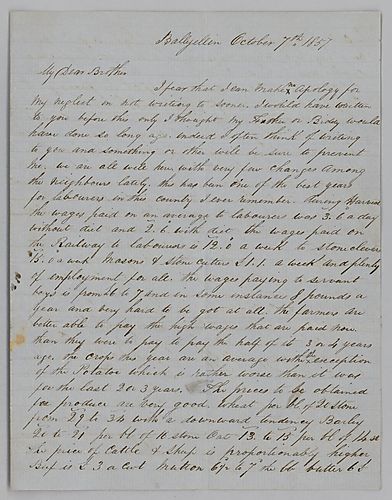 Ballyellin October 7th 1857
My Dear Brother
I fear that I can make no apology for
my neglect on not writing to sooner I would have written
to you before this only I thought my Father or Biddy would
have done so long ago indeed I often think of writing
to you and something or other will be sure to prevent
me we are all well here with very few changes among
the neighbours lately. this has been one of the best years
for labourers in this county I ever remember. during Harvest
the wages paid on an average to labourers was 3.6 a day
without diet and 2.6 with diet the wages paid on
the Railway to labourers is 12.s a week to stone
15.0 a week Masons & Stone Cuters £1.1. a week and plenty
of employment for all. the wages paying to servant
boys is from £6 to 7 and in some instances 8 pounds a
year and very hard to be got at all. the farmers are
better able to pay the high wages that are paid now
than they were to pay to pay the half of it 3 or 4 years
ago. the crops this year are an average with the exception
of the Potatoe which is rather worse than it was
for the last 2 or 3 years. The prices to be obtained
for produce are very good. wheat per bl of 20 stone
from 29 to 34 with a downward tendency Barley
20 to 21 per bl of 16 stone Oat 13 to 15 per bl of 14 st
the price of Cattle & Sheep is proportionably higher
Beef is £ 3 a cwt Mutton 6½ to 7d the lb butter